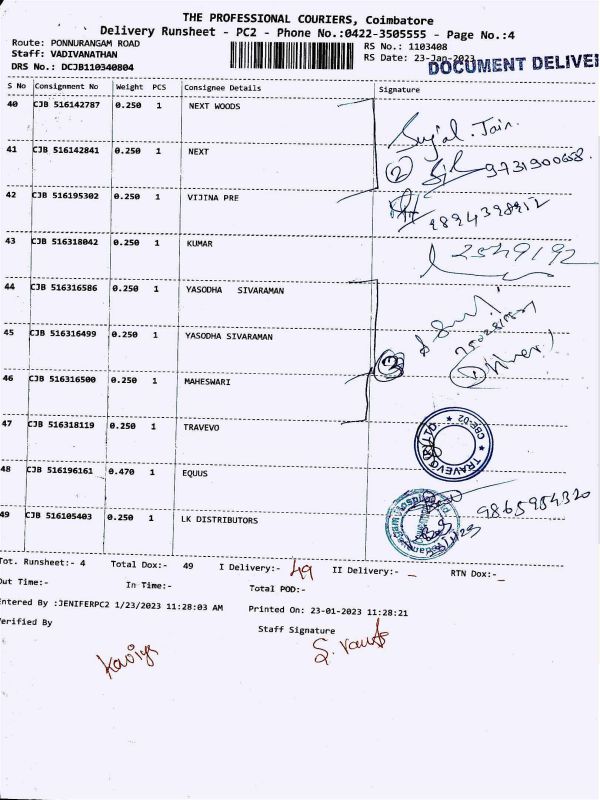 THE PROFESSIONAL COURIERS, Coimbatore
Delivery Runsheet - PC2 - Phone No.:0422-3505555 - Page No.:4
Route: PONNURANGAM ROAD
RS No.: 1103408
Staff: VADIVANATHAN
RS Date: 23-Jan-2023
DRS No.: DCJB110340804
DOCUMENT DELIVE
S No Consignment No Weight PCS Consignee Details Signature
40 CJB 516142787 0.250 1 NEXT WOODS
Sujal . Jain.
41 CJB 516142841 0.250 1 NEXT
2 9731900658.
42 CJB 516195302 0.250 1 VIJINA PRE
9894398912
43 CJB 516318042 0.250 1 KUMAR
2549192
44 CJB 516316586 0.250 1 YASODHA SIVARAMAN
45 CJB 516316499 0.250 1 YASODHA SIVARAMAN
3
46 CJB 516316500 0.250 1 MAHESWARI
47 CJB 516318119 0.250 1 TRAVEVO
TRAVEVO CBE-02
48 CJB 516196161 0.470 1 EQUUS
9865954320
49 CJB 516105403 0.250 1 LK DISTRIBUTORS
Tot. Runsheet:- 4 Total Dox:- 49 I Delivery:- 49 II Delivery:- - RTN Dox:- -
Out Time:- In Time:- Total POD:-
Entered By :JENIFERPC2 1/23/2023 11:28:03 AM Printed On: 23-01-2023 11:28:21
Verified By Staff Signature
Kaviya